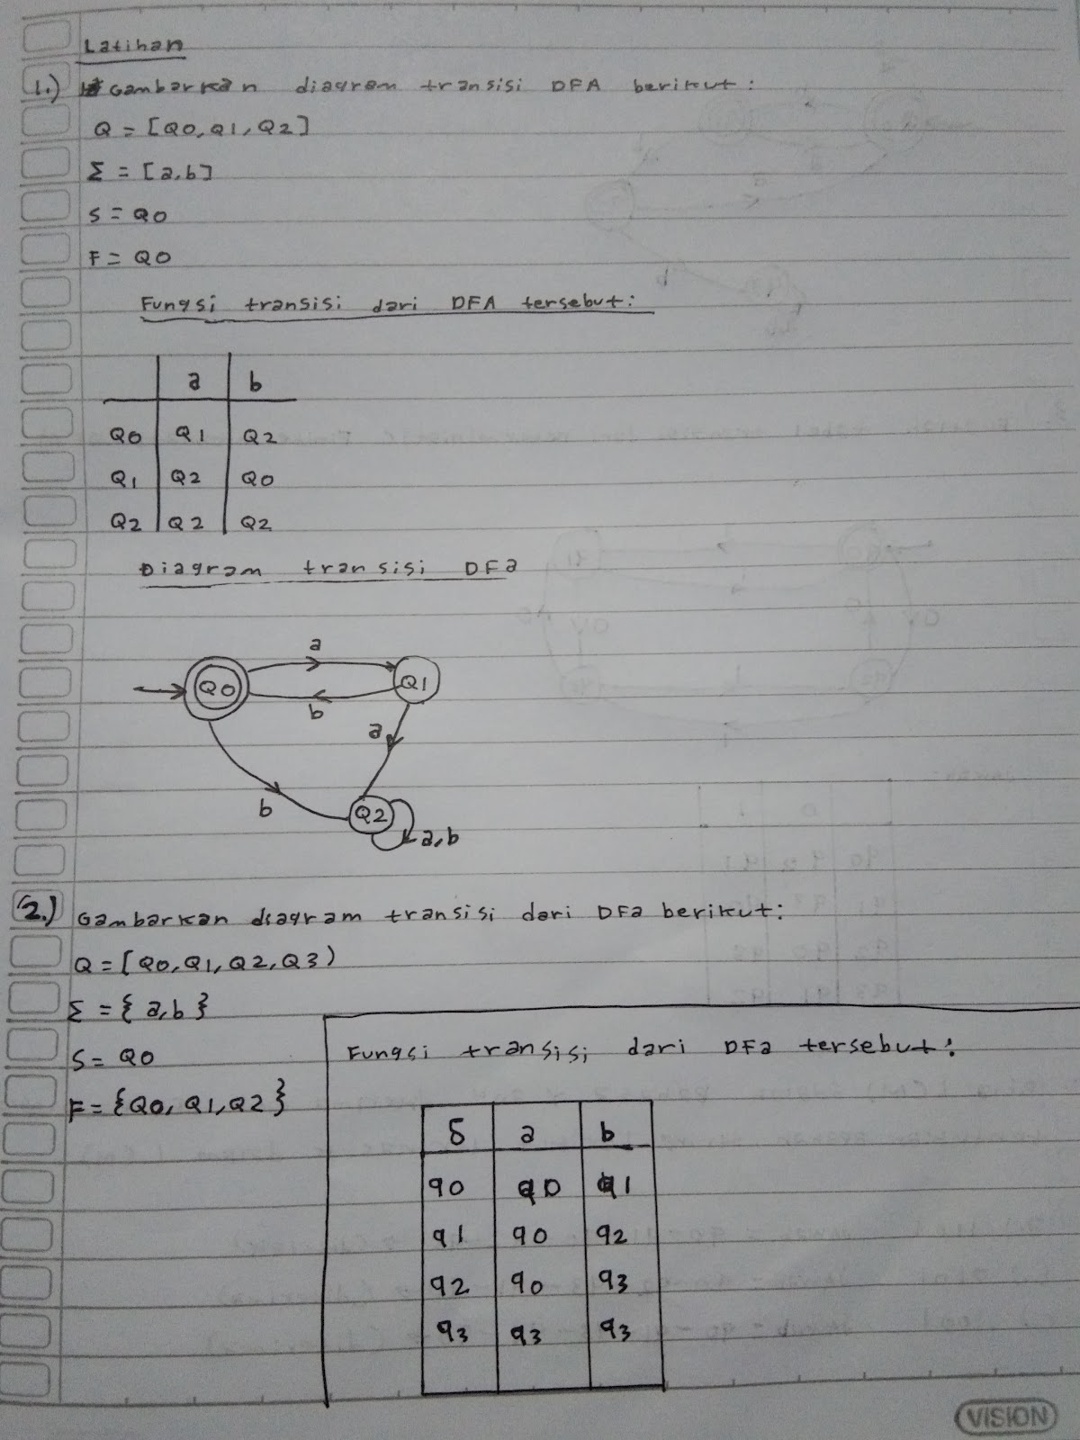 Latihan
1.) Gambarkan diagram transisi DFA berikut:
Q = [Q0, Q1, Q2]
Σ = [a,b]
S = Q0
F = Q0
Fungsi transisi dari DFA tersebut:
a b
Q0 Q1 Q2
Q1 Q2 Q0
Q2 Q2 Q2
Diagram transisi DFa
a
Q0 Q1
b
a
b
Q2
a,b
2.) Gambarkan diagram transisi dari DFa berikut:
Q = [Q0, Q1, Q2, Q3)
Σ = {a,b}
S = Q0
F = {Q0, Q1, Q2}
Fungsi transisi dari DFa tersebut:
δ a b
q0 q0 q1
q1 q0 q2
q2 q0 q3
q3 q3 q3
VISION